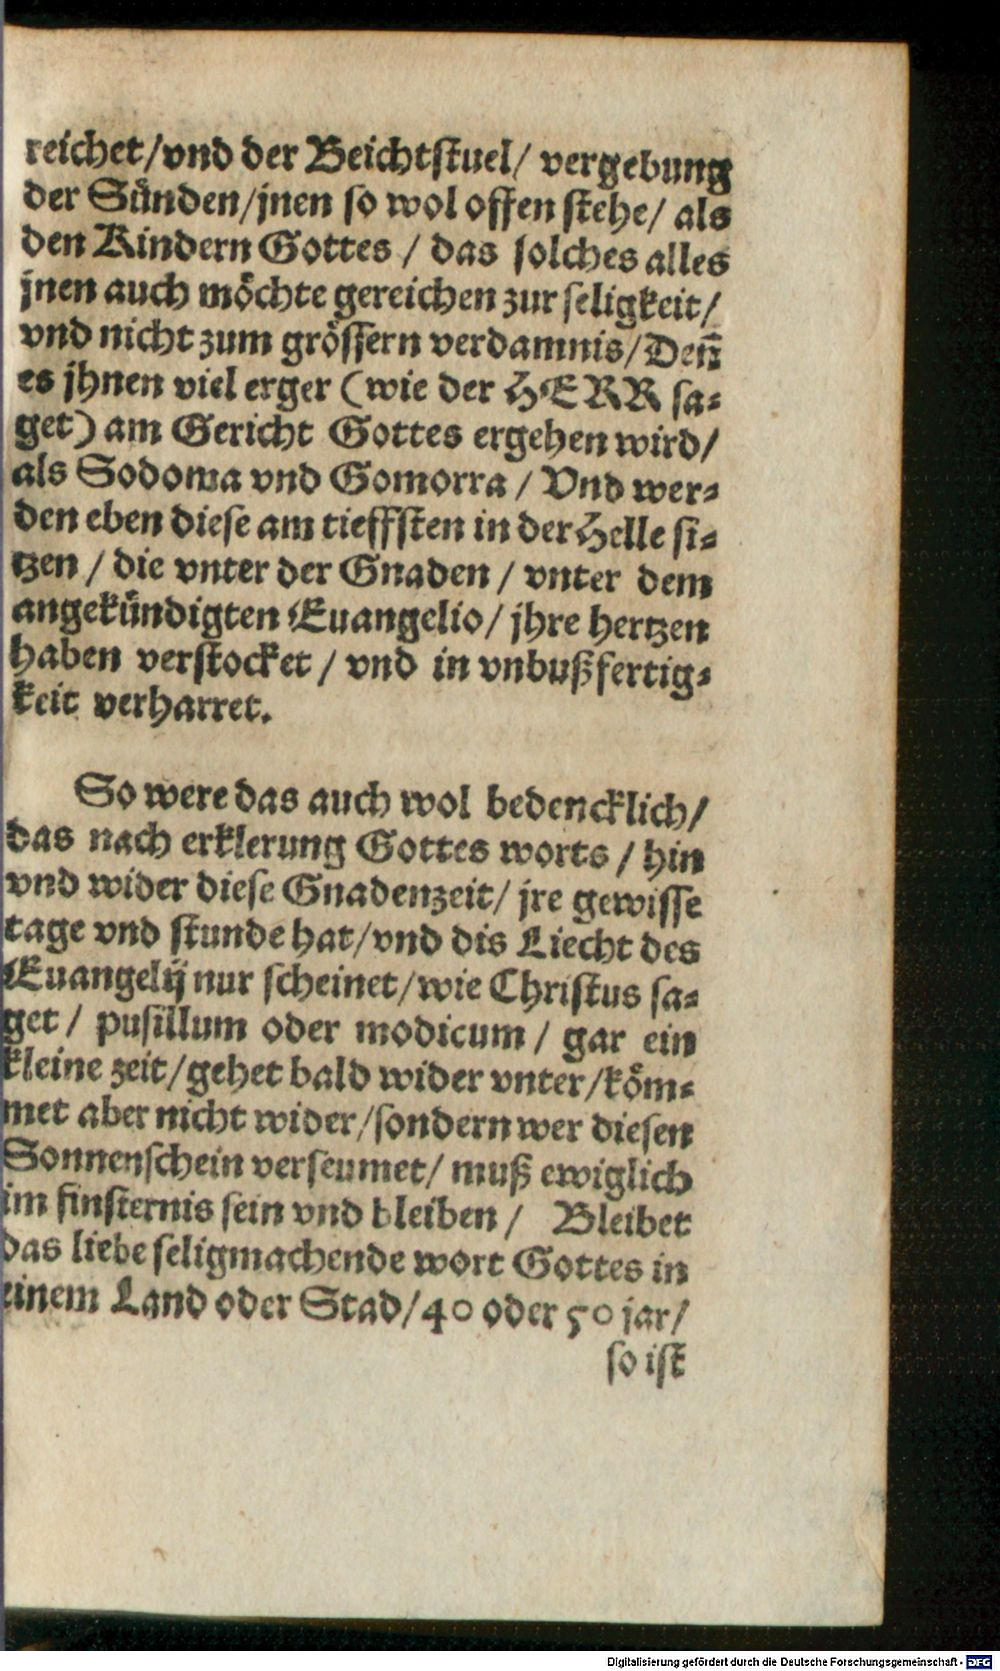 reichet/vnd der Beichtstuel/ vergebung
der Sünden/jnen so wol offen stehe/ als
den Kindern Gottes / das solches alles
jnen auch möchte gereichen zur seligkeit/
vnd nicht zum grössern verdamnis/Deñ
es jhnen viel erger (wie der HERR sa⸗
get) am Gericht Gottes ergehen wird/
als Sodoma vnd Gomorra / Vnd wer⸗
den eben diese am tieffsten in der Helle si⸗
tzen / die vnter der Gnaden / vnter dem
angekündigten Euangelio/ jhre hertzen
haben verstocket / vnd in vnbußfertig⸗
keit verharret.
So were das auch wol bedencklich/
das nach erklerung Gottes worts / hin
vnd wider diese Gnadenzeit/ jre gewisse
tage vnd stunde hat/vnd dis Liecht des
Euangelij nur scheinet/wie Christus sa⸗
get / pusillum oder modicum / gar ein
kleine zeit/gehet bald wider vnter/köm⸗
met aber nicht wider/sondern wer diesen
Sonnenschein verseumet/ muß ewiglich
im finsternis sein vnd bleiben / Bleibet
das liebe seligmachende wort Gottes in
einem Land oder Stad/40 oder 50 jar/
so ist
Digitalisierung gefördert durch die Deutsche Forschungsgemeinschaft - DFG